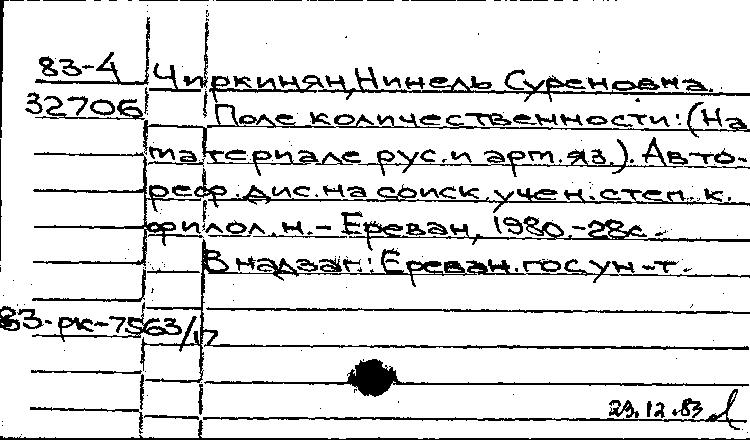 83-4 Чиркинян, Нинель Суреновна.
32706 Поле количественности: (На
материале рус. и арт. яз.). Авто-
реф. дис. на соиск. учен. степ. к.
филол. н. - Ереван, 1980. - 28с.
В надзаг.: Ереван. гос. ун-т.
83-рк-7563/17
29.12.83